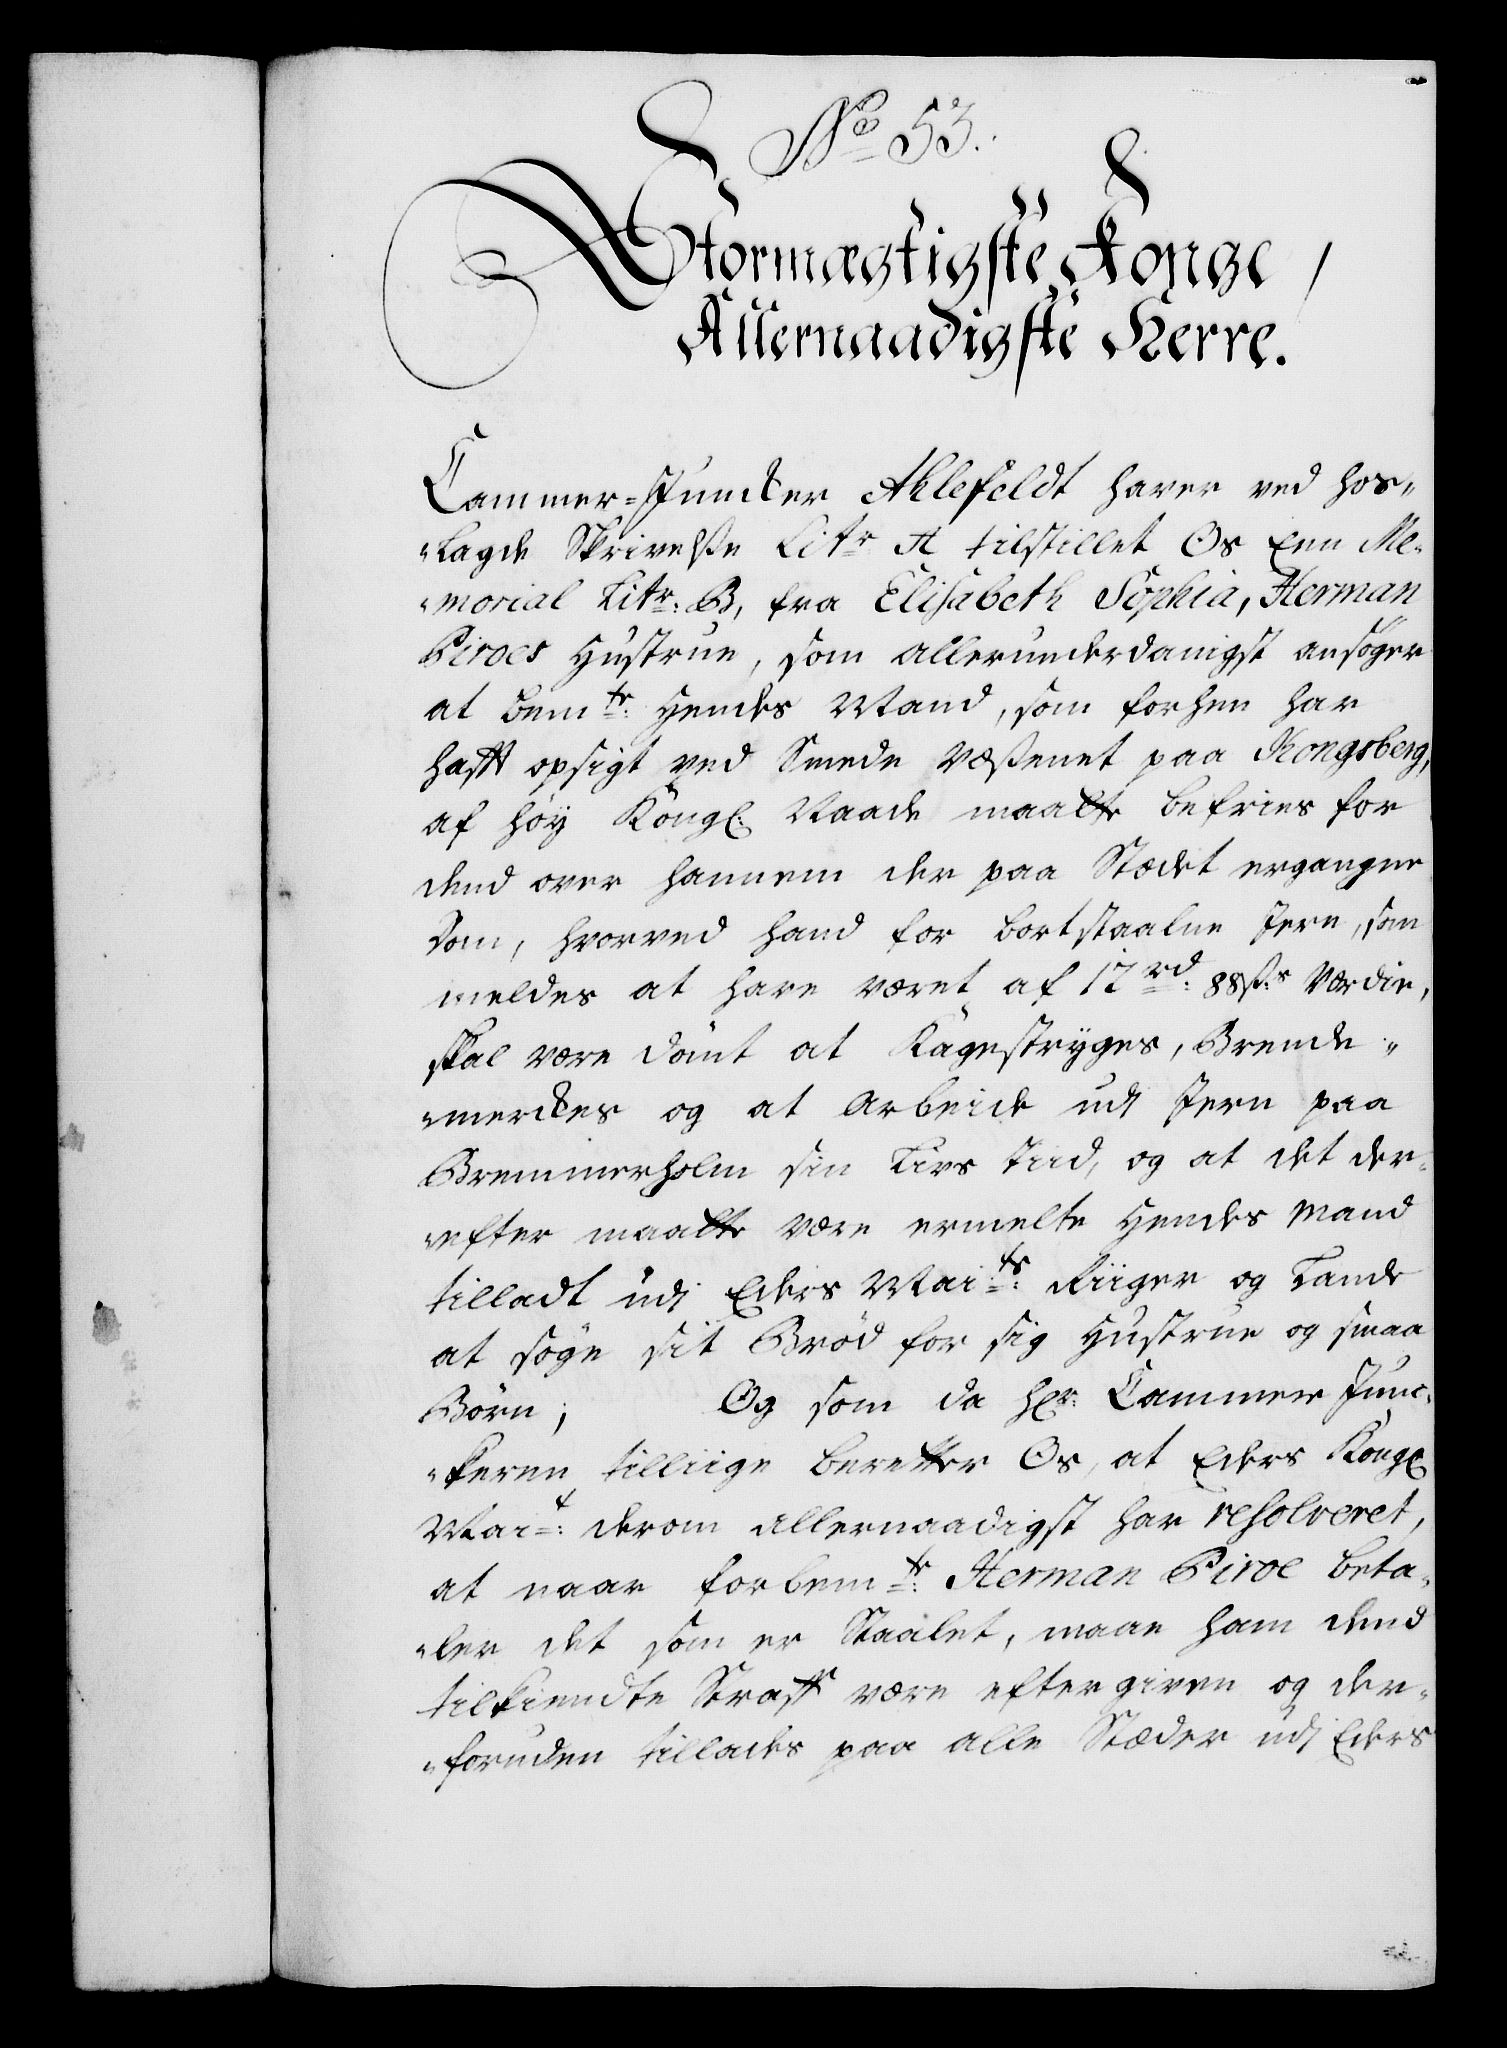 No 53.
Stormægtigste Konge /
Allernaadigste Herre.
Cammer=Juncker Ahlefeldt haver ved hos„
„lagde Skrivelße Litr A tilstillet Os een Me„
„morial Litr: B, fra Elisabeth Sophia, Herman
Piroes Hustrue, som allerunderdanigst ansøger
at bemte: Hendes Mand, som forhen har
hafft opsigt ved Smede Væßenet paa Kongsberg,
af høy Kongl: Naade maatte befries for
dend over hannem der paa Stædet ergangne
Dom, hvorved hand for bortstaalne Jern, som
meldes at have været af 12 rd: 88 ß:s Værdie,
skal være dømt at Kagestryges, Brende„
„merckes og at arbeide udj Jern paa
Bremmerholm sin Livs Tiid, og at det der„
„efter maatte være ermelte Hendes Mand
tilladt udj Eders Maits: Riiger og Lande
at søge sit Brød for sig Hustrue og smaa
Børn; Og som da Hr: Cammer Junc„
„keren tilliige beretter Os, at Eders Kongl
Mait: derom allernaadigst har resolveret,
at naar forbemte: Herman Piroe beta„
„ler det som er Staalet, maae ham dend
tilkiendte Straff være eftergiven og der„
„foruden tillades paa alle Stæder udj Eders